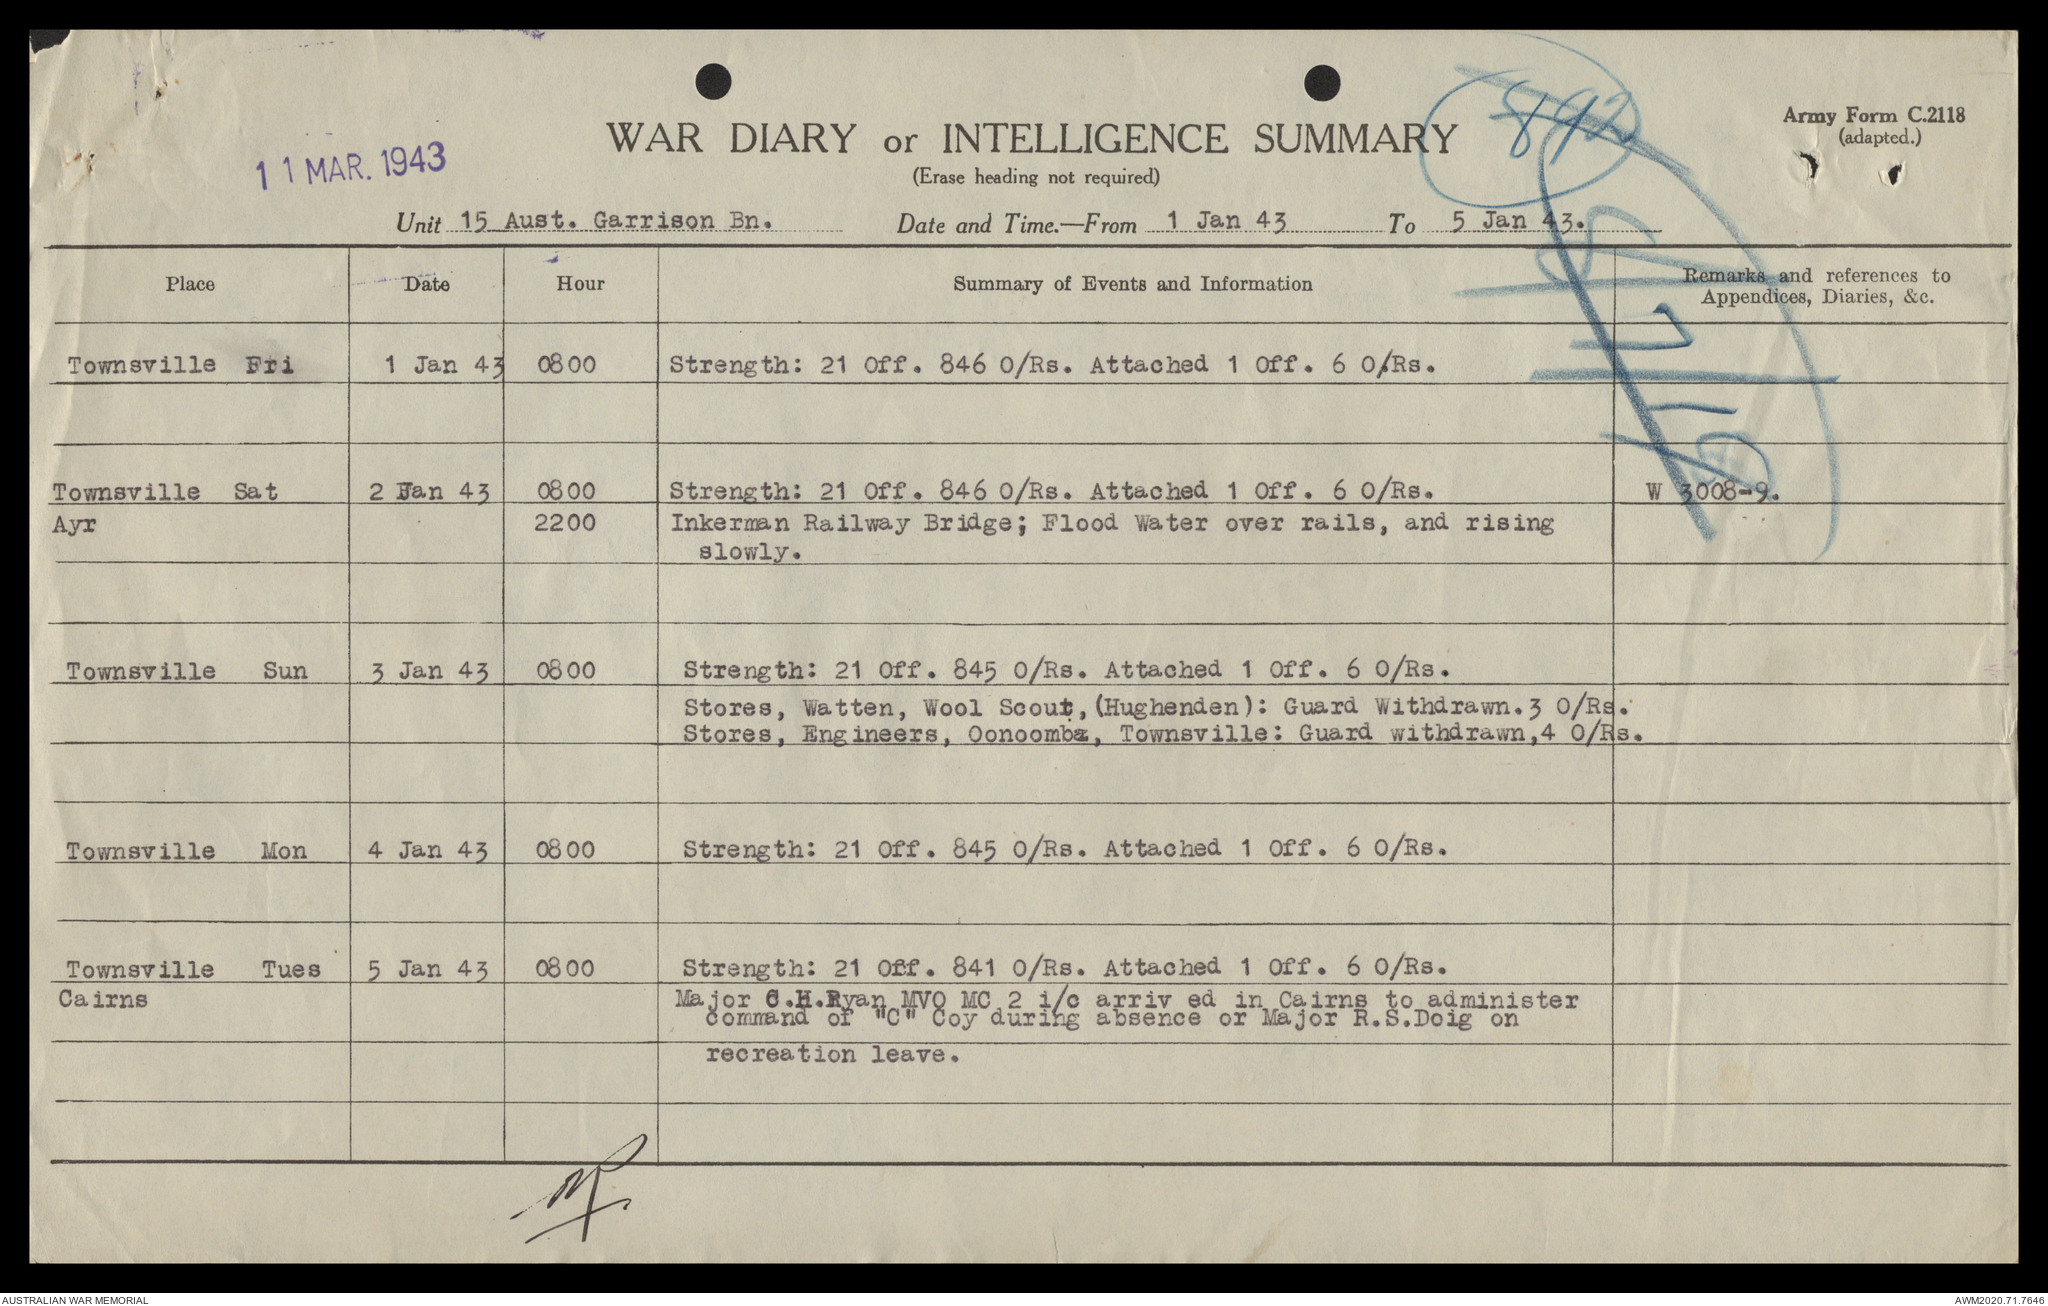 11 MAR. 1943
WAR DIARY or INTELLIGENCE SUMMARY
(Erase heading not required)
Army Form C.2118
(adapted.)
892
Unit 15 Aust. Garrison Bn. Date and Time.—From 1 Jan 43 To 5 Jan 43.
Place Date Hour Summary of Events and Information Remarks and references to
Appendices, Diaries, &c.
Townsville Fri 1 Jan 43 0800 Strength: 21 Off. 846 O/Rs. Attached 1 Off. 6 O/Rs.
Townsville Sat 2 Jan 43 0800 Strength: 21 Off. 846 O/Rs. Attached 1 Off. 6 O/Rs. W 3008-9.
Ayr 2200 Inkerman Railway Bridge; Flood Water over rails, and rising
slowly.
Townsville Sun 3 Jan 43 0800 Strength: 21 Off. 845 O/Rs. Attached 1 Off. 6 O/Rs.
Stores, Watten, Wool Scout, (Hughenden): Guard Withdrawn. 3 O/Rs.
Stores, Engineers, Oonoomba, Townsville: Guard withdrawn, 4 O/Rs.
Townsville Mon 4 Jan 43 0800 Strength: 21 Off. 845 O/Rs. Attached 1 Off. 6 O/Rs.
Townsville Tues 5 Jan 43 0800 Strength: 21 Off. 841 O/Rs. Attached 1 Off. 6 O/Rs.
Cairns Major C.H.Ryan MVO MC 2 i/c arriv ed in Cairns to administer
command of "C" Coy during absence or Major R.S.Doig on
recreation leave.
AUSTRALIAN WAR MEMORIAL
AWM2020.71.7646